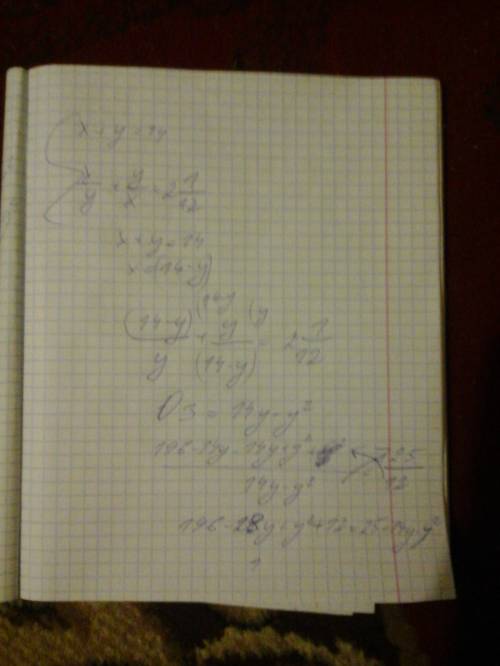 x + y = 14
x/y + y/x = 2 1/12
x + y = 14
x = (14-y)
(14-y)/y + y/(14-y) = 2 1/12
ОЗ = 14y - y²
196 - 14y - 14y + y²
14y - y²
196 - 28y + y²